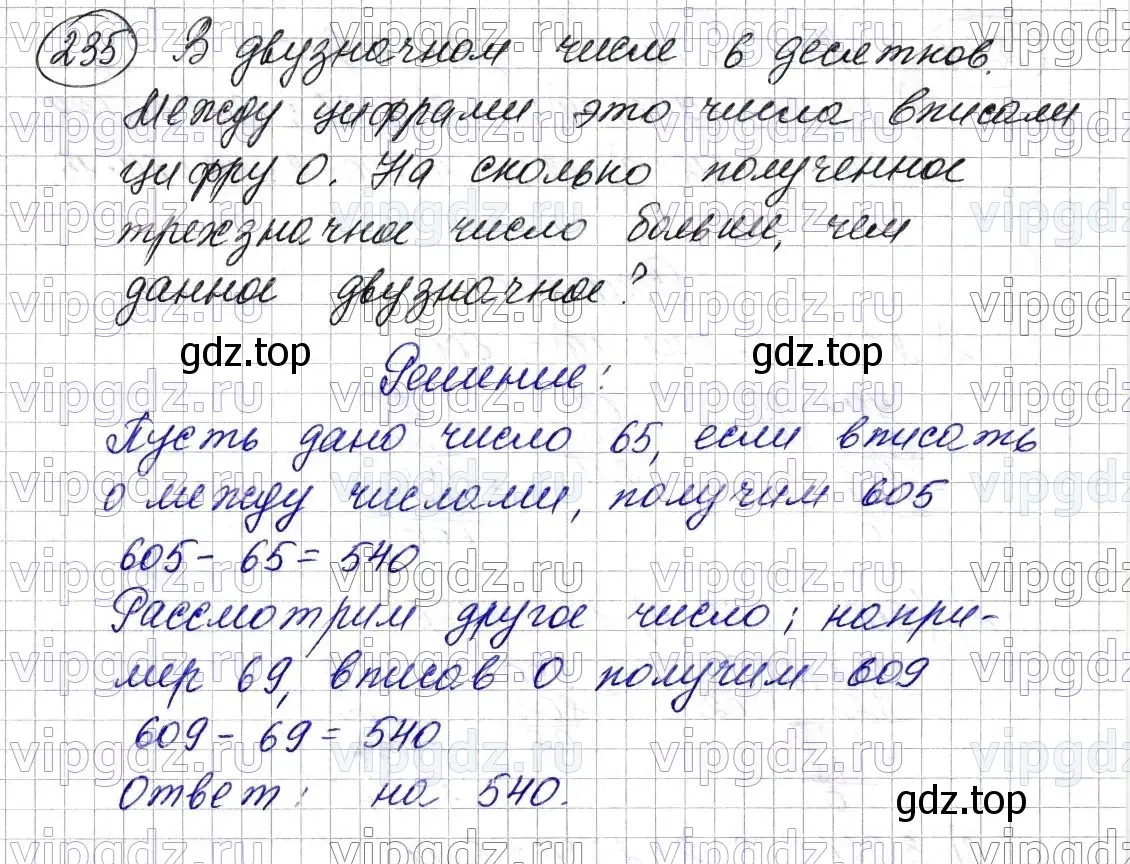 235 В двузначном числе 6 десятков.
Между цифрами это числа вписали
цифру 0. На сколько полученное
трехзначное число больше, чем
данное двузначное?
gdz.top gdz.top
Решение:
Пусть дано число 65, если вписать
0 между числами, получим 605
605 - 65 = 540
Рассмотрим другое число; напри-
мер 69, вписав 0 получим 609
609 - 69 = 540
Ответ: на 540.
gdz.top